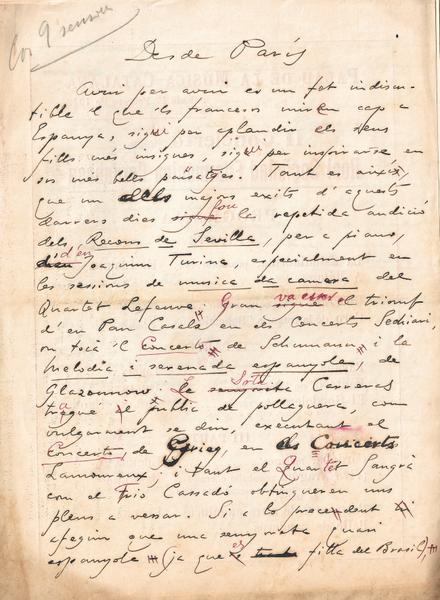 Desde París
Avui per avui es un fet indiscu-
tible el que els francesos miren cap a
Espanya, sigui per aplaudir els seus
fills més insignes, sigui per inspirarse en
sos més bells paisatges. Tant es aixíx,
que un dels majors exits d'aquests
darrers dies fou la repetida audició
dels Recons de Sevilla, per a piano,
d'en Joaquim Turina, especialment en
les sessions de musica da camera del
Quartet Lefeuve. Gran va esser el triomf
d'en Pau Casals en els Concerts Sechiari,
on tocà 'l Concerto de Schumann i la
Melodia i serenada espanyola, de
Glazounow. La Srta Carreras
tragué el públic de pollaguera, com
vulgarment se diu, executant el
Concerto de Grieg, en els Concerts
Lamoureux; i tant el Quartet Sangrà
com el Trio Cassadó obtingueren uns
plens a vessar. Si a lo procedent hi
afegim que una senyoreta quasi
espanyola (ja que es filla del Brasil),